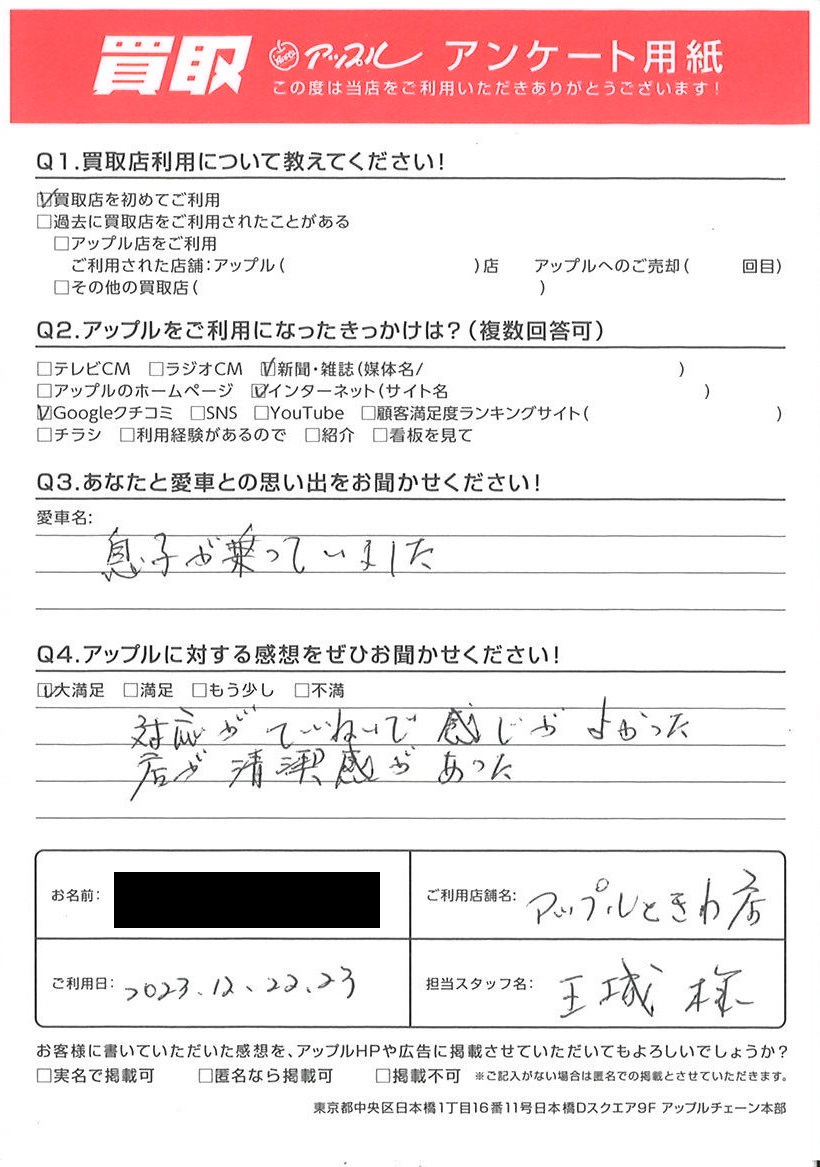 買取 アップル アンケート用紙
この度は当店をご利用いただきありがとうございます!
Q1.買取店利用について教えてください!
☑買取店を初めてご利用
□過去に買取店をご利用されたことがある
□アップル店をご利用
ご利用された店舗:アップル( )店 アップルへのご売却( 回目)
□その他の買取店( )
Q2.アップルをご利用になったきっかけは?(複数回答可)
□テレビCM □ラジオCM ☑新聞・雑誌(媒体名/ )
□アップルのホームページ ☑インターネット(サイト名 )
☑Googleクチコミ □SNS □YouTube □顧客満足度ランキングサイト( )
□チラシ □利用経験があるので □紹介 □看板を見て
Q3.あなたと愛車との思い出をお聞かせください!
愛車名:
息子が乗っていました
Q4.アップルに対する感想をぜひお聞かせください!
☑大満足 □満足 □もう少し □不満
対応がていねいで感じがよかった
店が清潔感があった
お名前:
ご利用店舗名: アップルときわ店
ご利用日: 2023.12.22.23
担当スタッフ名: 玉城 様
お客様に書いていただいた感想を、アップルHPや広告に掲載させていただいてもよろしいでしょうか?
□実名で掲載可 □匿名なら掲載可 □掲載不可 ※ご記入がない場合は匿名での掲載とさせていただきます。
東京都中央区日本橋1丁目16番11号日本橋Dスクエア9F アップルチェーン本部